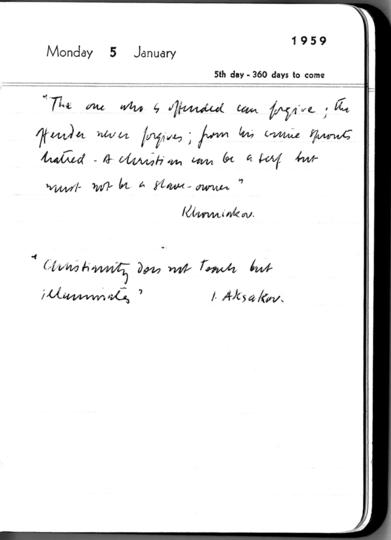 1959
Monday 5 January
5th day - 360 days to come
"The one who is offended can forgive; the
offender never forgives; from his crime sprouts
hatred - A christian can be a serf but
must not be a slave-owner"
Khomiakov.
"Christianity does not teach but
illuminates"
I. Aksakov.